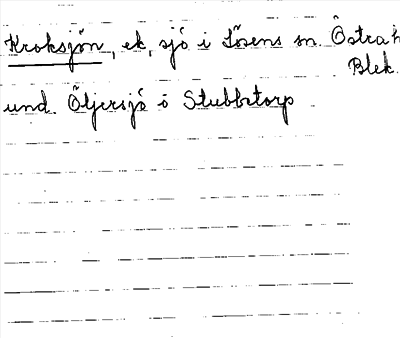 Kroksjön, ek, sjö i Lösens sn. Östra h
Blek.
und. Öljersjö o Stubbetorp